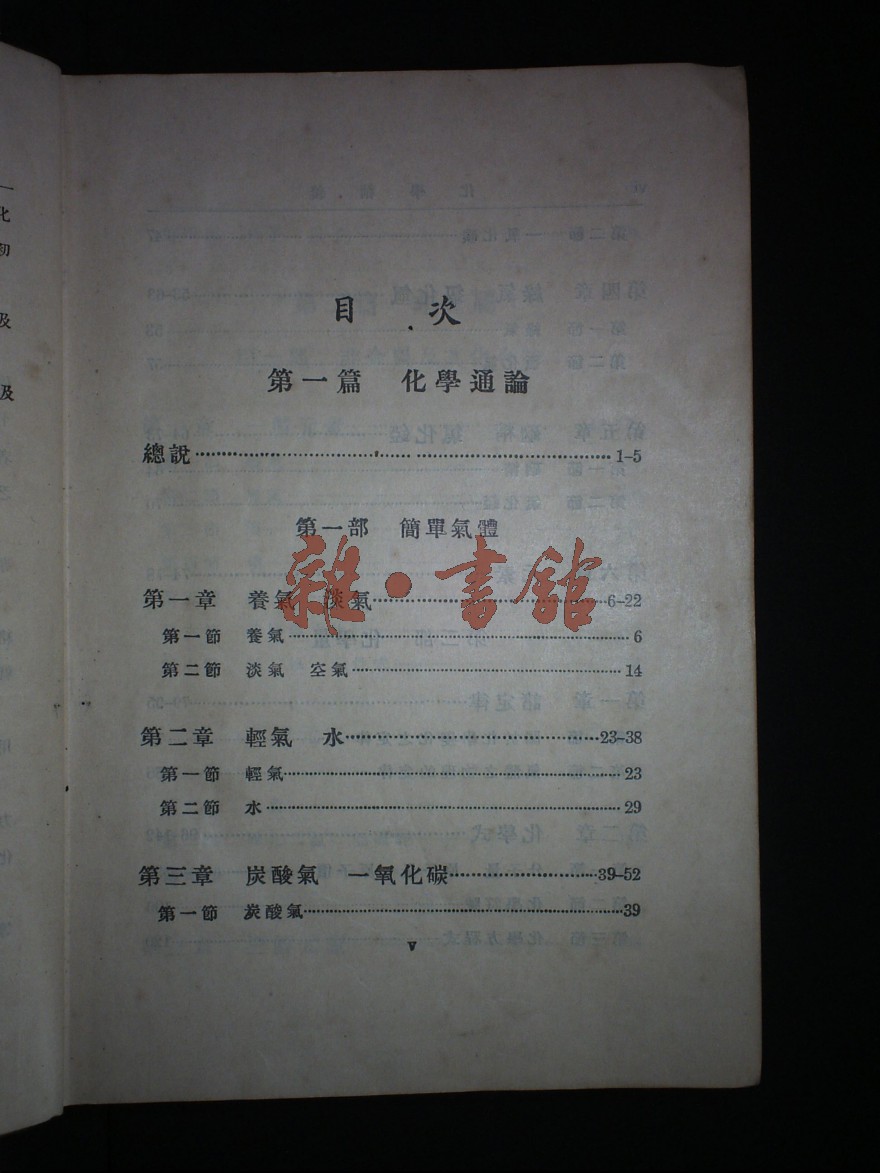 目 次
第一篇 化學通論
總說 1-5
第一部 簡單氣體
雜·書館
第一章 養氣 淡氣 6-22
第一節 養氣 6
第二節 淡氣 空氣 14
第二章 輕氣 水 23-38
第一節 輕氣 23
第二節 水 29
第三章 炭酸氣 一氧化碳 39-52
第一節 炭酸氣 39
v